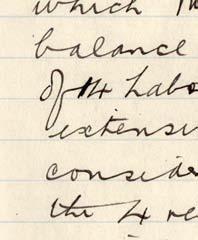 which
balance
of
extensi
consider
the 4 re